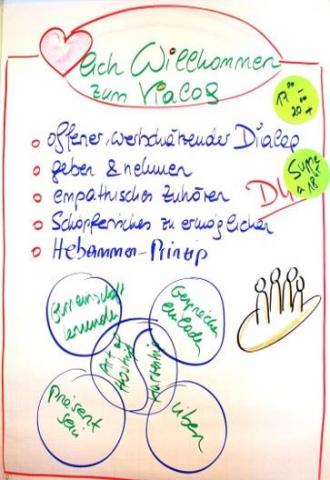 Herzlich Willkommen
zum Vialog
17⁰⁰
-
20⁰⁰
offener, wertschätzender Dialog
geben & nehmen
empathisches Zuhören
Schöpferisches zu ermöglichen
Hebammen-Prinzip
Gemeinschaft
lernende
Gespräche
einladen
Art of
Hosting
Präsent
sein
üben